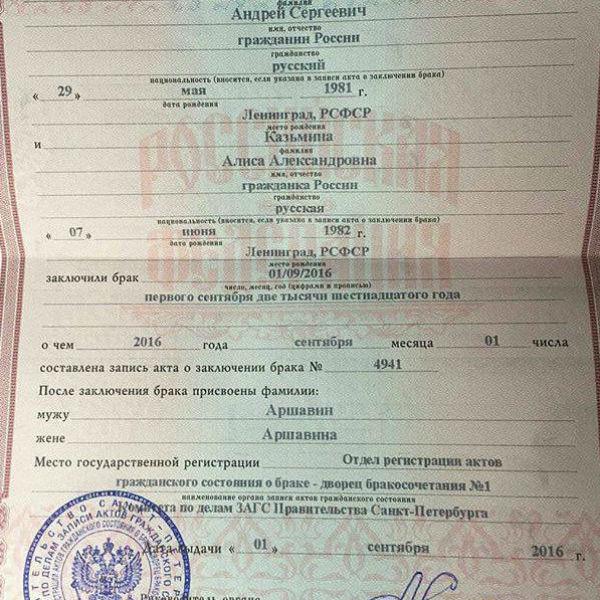 фамилия
Андрей Сергеевич
имя, отчество
гражданин России
гражданство
русский
национальность (вносится, если указана в записи акта о заключении брака)
« 29 » мая 1981 г.
дата рождения
Ленинград, РСФСР
место рождения
и Казьмина
фамилия
Алиса Александровна
имя, отчество
гражданка России
гражданство
русская
национальность (вносится, если указана в записи акта о заключении брака)
« 07 » июня 1982 г.
дата рождения
Ленинград, РСФСР
место рождения
заключили брак 01/09/2016
число, месяц, год (цифрами и прописью)
первого сентября две тысячи шестнадцатого года
о чем 2016 года сентября месяца 01 числа
составлена запись акта о заключении брака № 4941
После заключения брака присвоены фамилии:
мужу Аршавин
жене Аршавина
Место государственной регистрации Отдел регистрации актов
гражданского состояния о браке - дворец бракосочетания №1
наименование органа записи актов гражданского состояния
Комитета по делам ЗАГС Правительства Санкт-Петербурга
Дата выдачи « 01 » сентября 2016 г.
Руководитель органа
РОССИЙСКАЯ
ФЕДЕРАЦИЯ